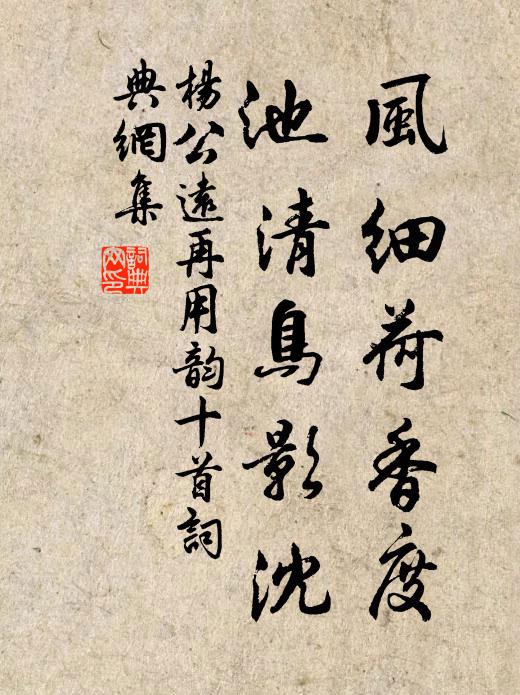 風細荷香度
池清鳥影沈
楊公遠再用韵十首詞
典網集
詞典
网印